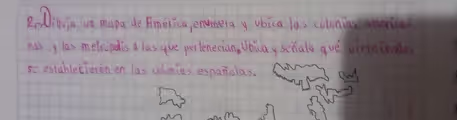 2. Dibuja un mapa de América, enumera y ubica las colonias america-
nas y las metrópolis a las que pertenecían, Ubica y señala qué virreinatos
se establecieron en las colonias españolas.